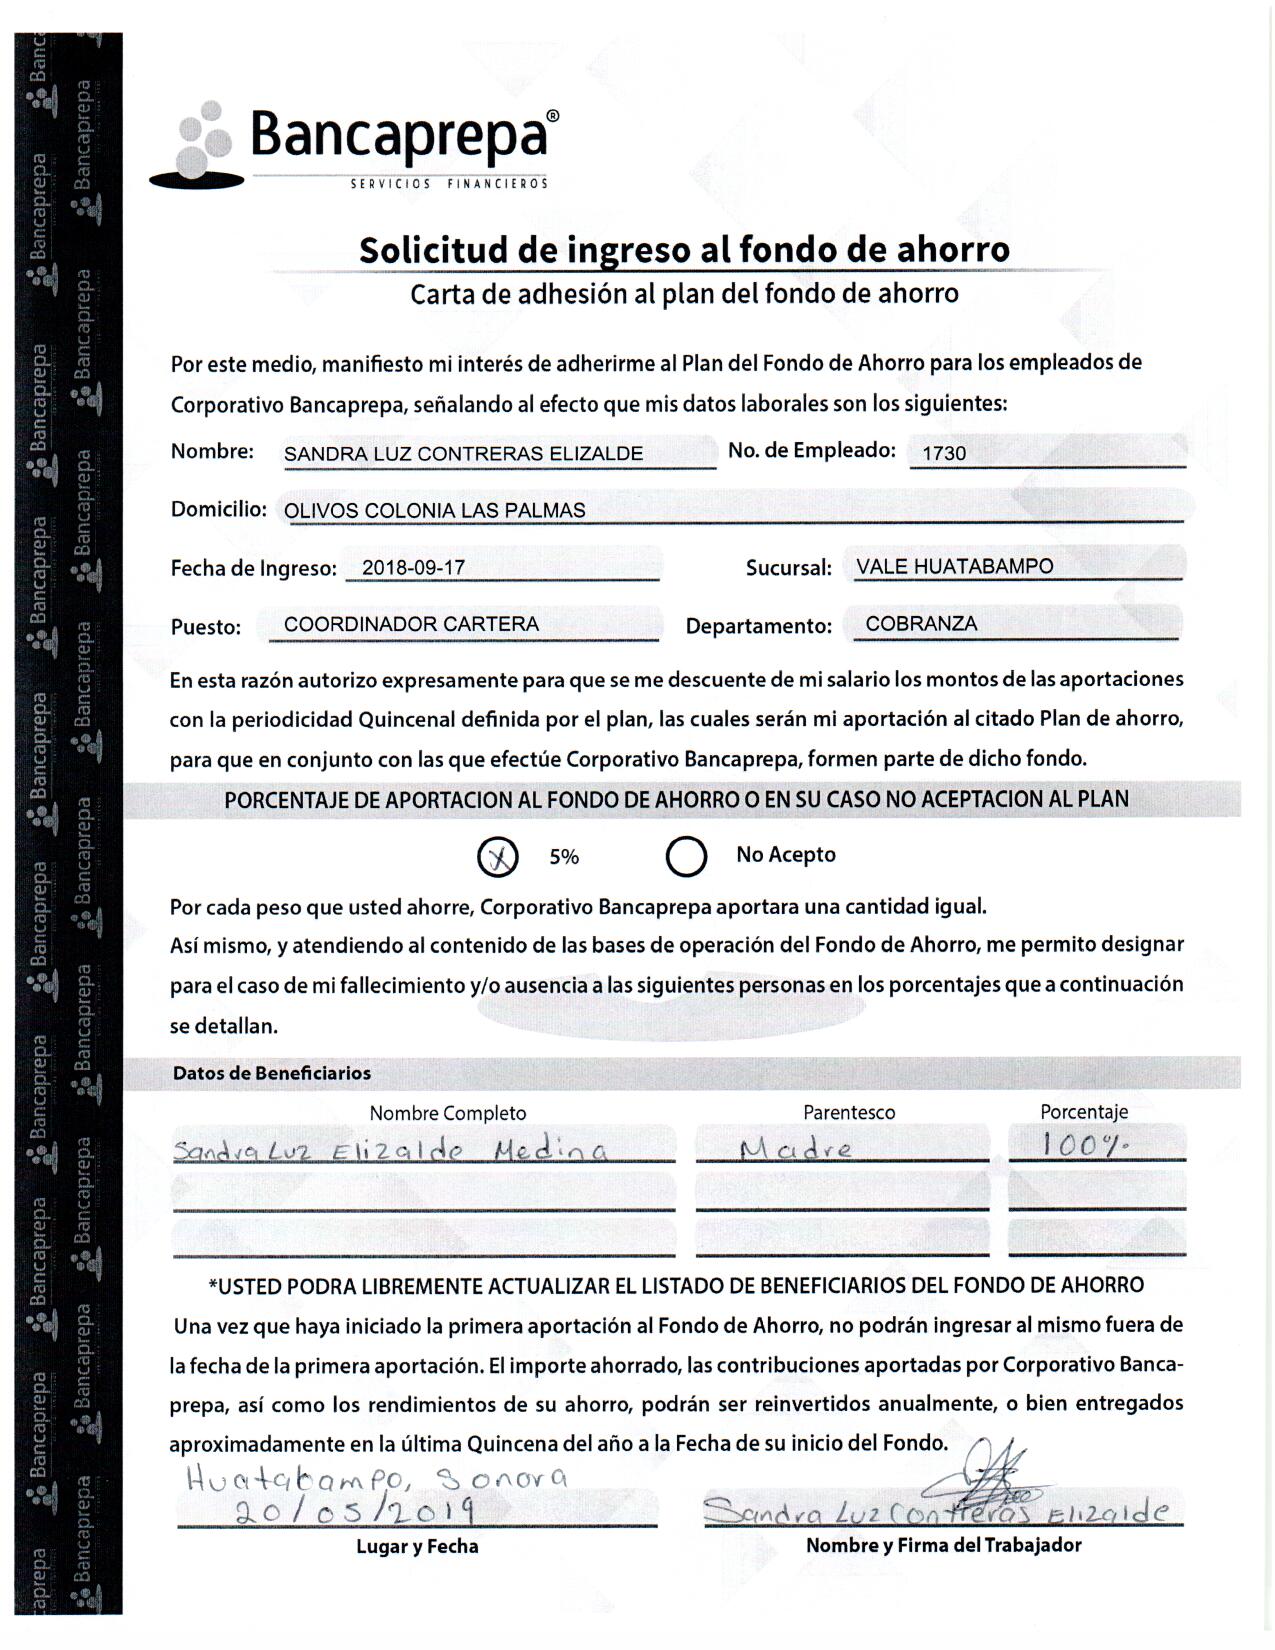 Bancaprepa®
SERVICIOS FINANCIEROS
Solicitud de ingreso al fondo de ahorro
Carta de adhesión al plan del fondo de ahorro
Por este medio, manifiesto mi interés de adherirme al Plan del Fondo de Ahorro para los empleados de
Corporativo Bancaprepa, señalando al efecto que mis datos laborales son los siguientes:
Nombre: SANDRA LUZ CONTRERAS ELIZALDE No. de Empleado: 1730
Domicilio: OLIVOS COLONIA LAS PALMAS
Fecha de Ingreso: 2018-09-17 Sucursal: VALE HUATABAMPO
Puesto: COORDINADOR CARTERA Departamento: COBRANZA
En esta razón autorizo expresamente para que se me descuente de mi salario los montos de las aportaciones
con la periodicidad Quincenal definida por el plan, las cuales serán mi aportación al citado Plan de ahorro,
para que en conjunto con las que efectúe Corporativo Bancaprepa, formen parte de dicho fondo.
PORCENTAJE DE APORTACION AL FONDO DE AHORRO O EN SU CASO NO ACEPTACION AL PLAN
X 5% No Acepto
Por cada peso que usted ahorre, Corporativo Bancaprepa aportara una cantidad igual.
Así mismo, y atendiendo al contenido de las bases de operación del Fondo de Ahorro, me permito designar
para el caso de mi fallecimiento y/o ausencia a las siguientes personas en los porcentajes que a continuación
se detallan.
Datos de Beneficiarios
Nombre Completo Parentesco Porcentaje
Sandra Luz Elizalde Medina Madre 100%
*USTED PODRA LIBREMENTE ACTUALIZAR EL LISTADO DE BENEFICIARIOS DEL FONDO DE AHORRO
Una vez que haya iniciado la primera aportación al Fondo de Ahorro, no podrán ingresar al mismo fuera de
la fecha de la primera aportación. El importe ahorrado, las contribuciones aportadas por Corporativo Banca-
prepa, así como los rendimientos de su ahorro, podrán ser reinvertidos anualmente, o bien entregados
aproximadamente en la última Quincena del año a la Fecha de su inicio del Fondo.
Huatabampo, Sonora
20/05/2019 Sandra Luz Contreras Elizalde
Lugar y Fecha Nombre y Firma del Trabajador